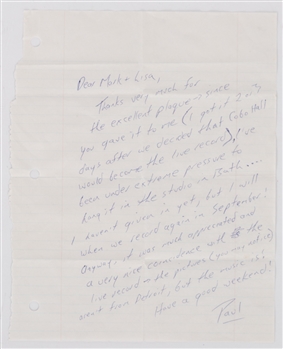 Dear Mark + Lisa,
Thanks very much for
the excellent plaque - since
you gave it to me (I got it 2
days after we decided that Cobo Hall
would become the live record), I've
been under extreme pressure to
hang it in the studio in Bath....
I haven't given in yet, but I will
when we record again in September.
Anyway, it was most appreciated and
a very nice coincidence with the
live record
went from Detroit, but the music is!
Have a good weekend!
Paul